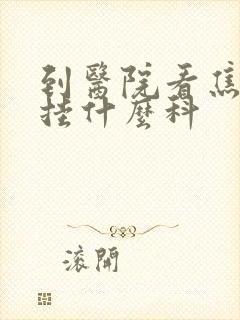 到醫院看焦
挂什麼科
滾開